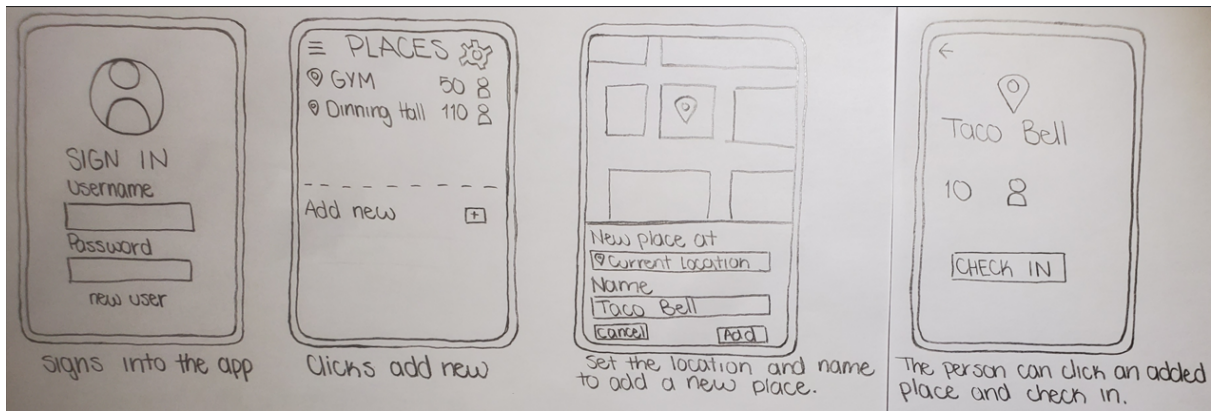 SIGN IN
Username
Password
new user
signs into the app
PLACES
GYM 50
Dinning Hall 110
Add new
Clicks add new
New place at
Current Location
Name
Taco Bell
Cancel Add
set the location and name
to add a new place.
Taco Bell
10
CHECK IN
The person can click an added
place and check in.